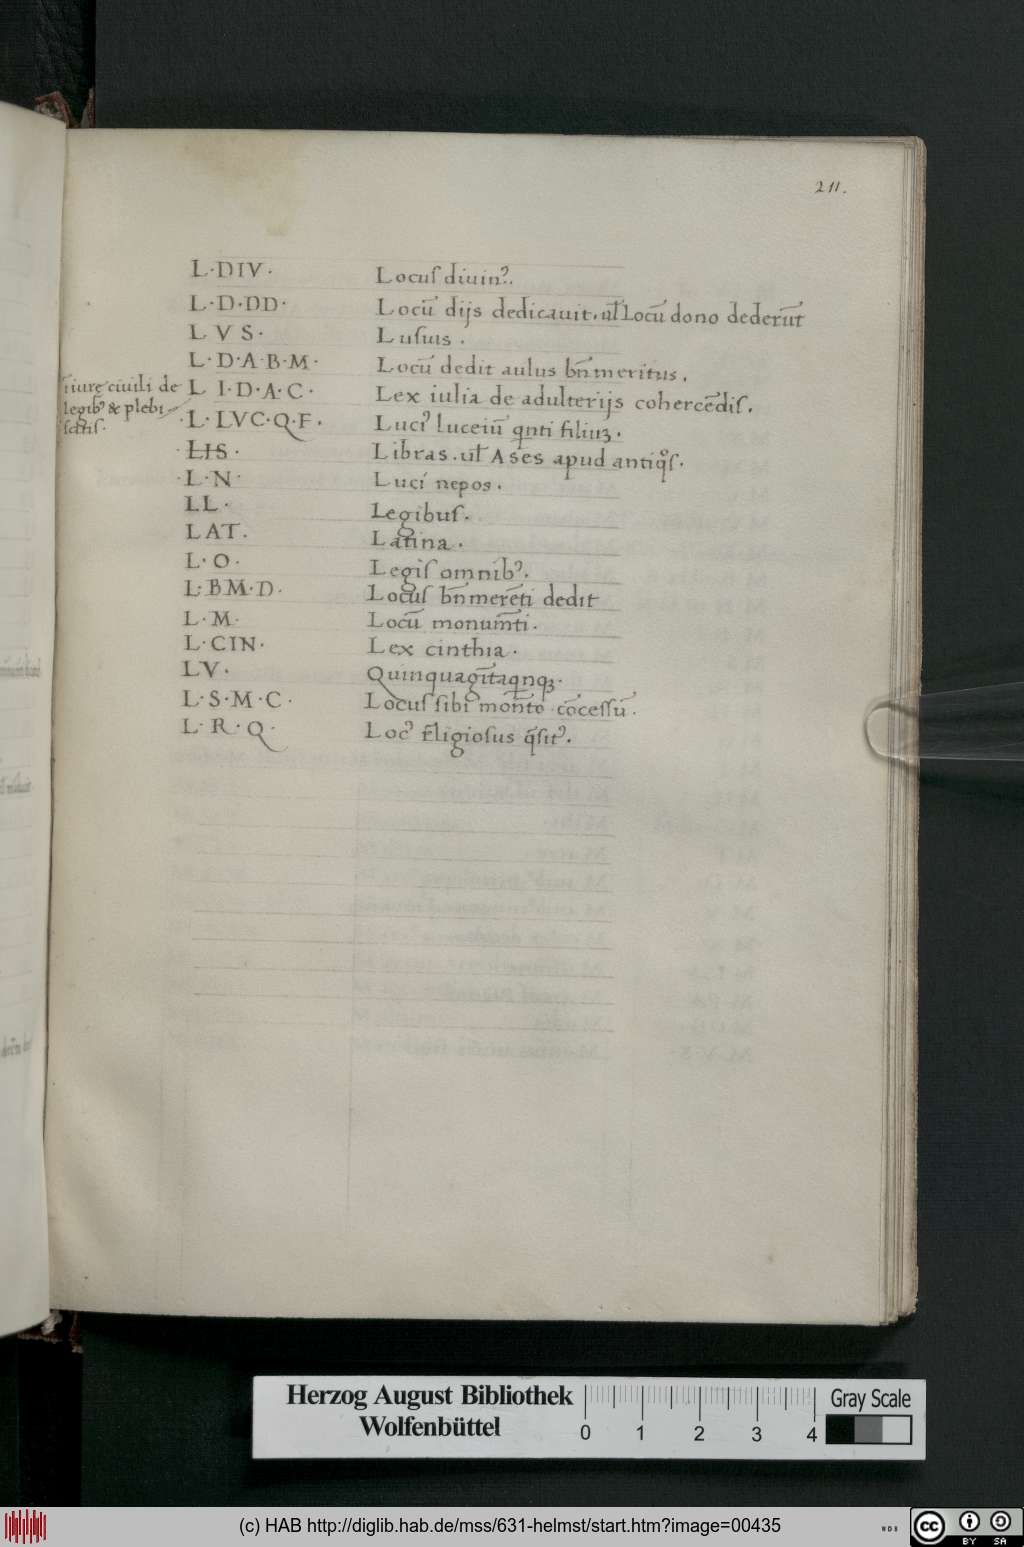 211.
L·DIV· Locuſ diuin⁹.
L·D·DD· Locū dijs dedicauit. ul̄ Locū dono dederūt
L V S· Luſuis .
L·D·A·B·M· Locū dedit aulus bn̄meritus.
ī iurę ciuili de
legib⁹ & plebi
ſcitiſ.
L I·D·A·C· Lex iulia de adulterijs cohercēdiſ.
·L·LVC·Q·F· Luci⁹ luceiū qͥnti filiuʒ.
·LIS· Libras. ul̄ Ases apud antiqͦſ.
·L·N· Luci nepos.
LL· Legibuſ.
LAT. Latina.
L·O· Legiſ omnib⁹.
L·BM·D· Locuſ bn̄merēti dedit
L·M· Locū monumēti.
L·CIN· Lex cinthia.
LV· Quinquagītaqͥnqʒ.
L·S·M·C· Locuſ ſibi mon̄to cōceſſū.
L·R·Q· Loc⁹ r̄ligioſus q̄ſit⁹.
Herzog August Bibliothek
Wolfenbüttel
0 1 2 3 4
Gray Scale
(c) HAB http://diglib.hab.de/mss/631-helmst/start.htm?image=00435
WDB
cc BY SA